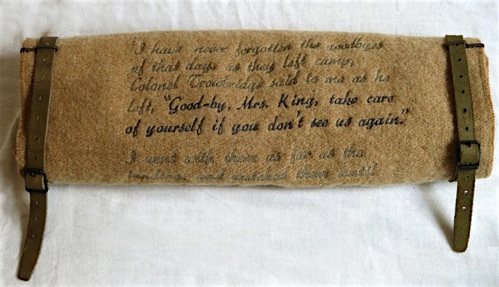 I have never forgotten the goodbyes
of that day, as they left camp,
Colonel Trowbridge said to me as he
left, "Good-by, Mrs. King, take care
of yourself if you don't see us again."
I went with them as far as the
landing, and watched them until